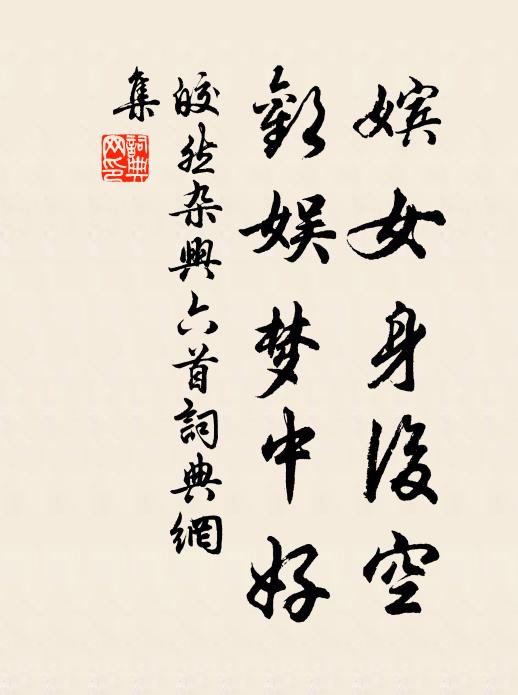 嫔女身後空
歡娱梦中好
皎然杂興六首詞典網
集
詞典网印